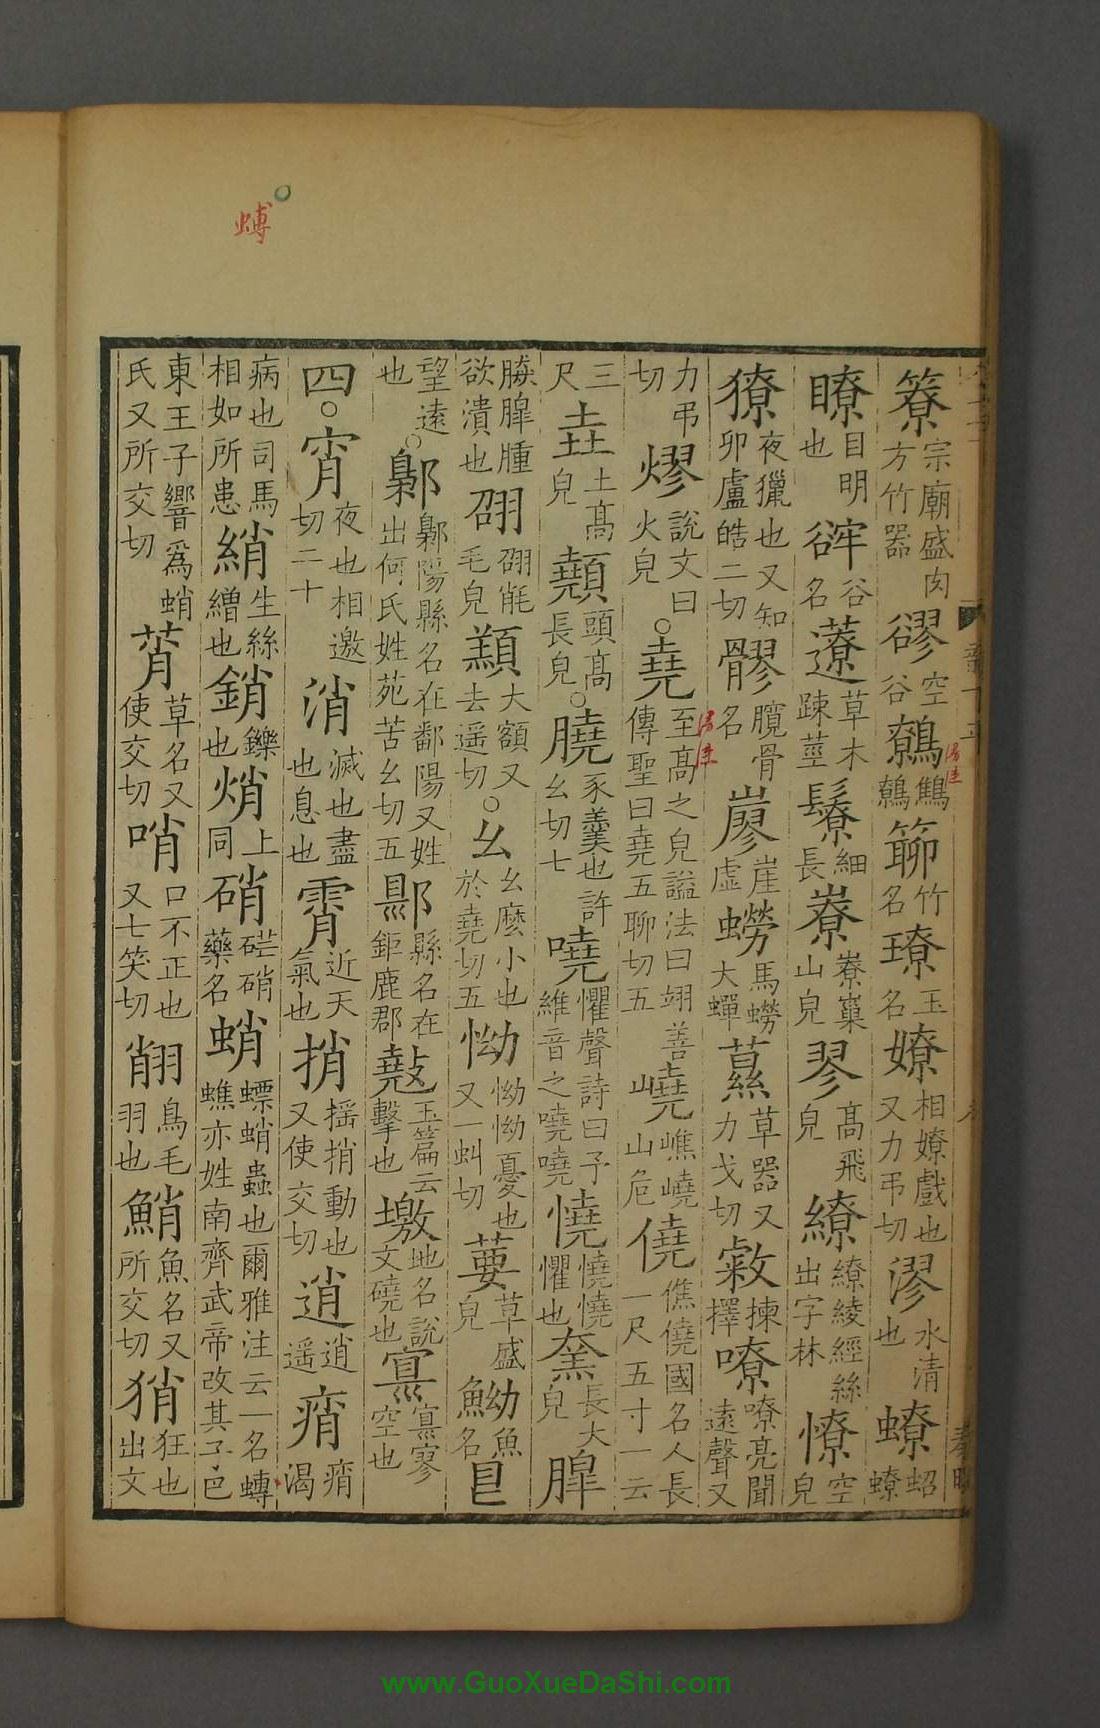 簝宗廟盛肉方竹器豂空谷鷯鷦鷯䉼竹名璙玉名嫽相嫽戲也又力弔切漻水清也蟟蛁蟟
瞭目明也谷名蔆草木踈莖髎細長嶚嶚巢山皃翏高飛皃繚繚綾經絲出字林憭空皃
獠夜獵也又知卯盧皓二切髎髖骨名廫崖虛蟧馬蟧大蟬藔草器又力戈切敹揀擇嘹嘹亮聞遠聲又
力弔切熮說文曰火皃○堯至高之皃謚法曰翊善傳聖曰堯五聊切五嶢嶕嶢山危僥僬僥國名人長一尺五寸一云
三尺垚土高皃顤頭高長皃○膮豕羹也許幺切七嘵懼聲詩曰予維音之嘵嘵憢憢憢懼也㚠長大皃膮
腫欲潰也㲈毛皃顤大額又去遥切○幺幺麼小也於堯切五怮怮怮憂也又一虬切葽草盛皃䱂魚名䀏
望遠也○鄡鄡陽縣名在鄱陽又姓出何氏姓苑苦幺切五鄡縣名在鉅鹿郡䰫玉篇云擊也墽地名說文磽也寡寥空也
四○宵夜也相邀切二十消滅也盡也息也霄近天氣也捎揺捎動也又使交切逍逍遥痟痟渴
病也司馬相如所患綃生絲繒也銷鑠也焇上同硝硭硝藥名蛸螵蛸蟲也爾雅注云一名蟳蟭亦姓南齊武帝改其子巴
東王子響爲蛸氏又所交切莦草名又使交切哨口不正也又七笑切䎄鳥毛羽也鮹魚名又所交切猏狂也出文